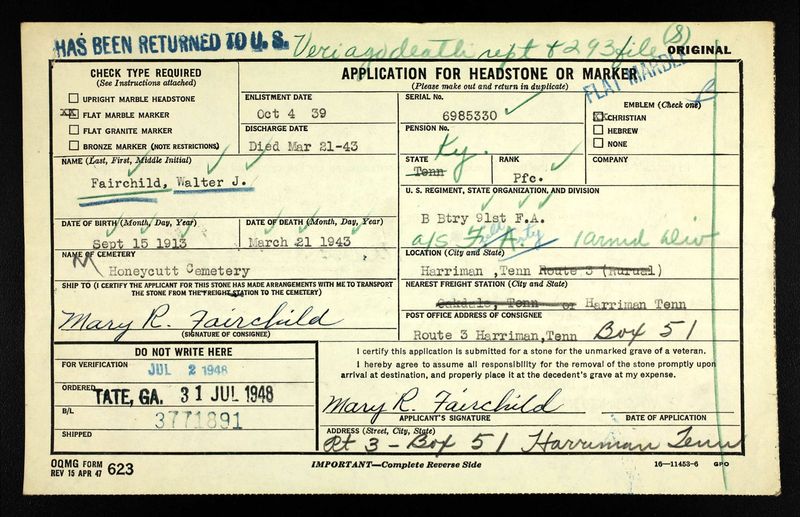 HAS BEEN RETURNED TO U. S.
Veri ago death rept & 293 file (S)
ORIGINAL
FLAT MARBLE
CHECK TYPE REQUIRED
(See Instructions attached)
UPRIGHT MARBLE HEADSTONE
XX FLAT MARBLE MARKER
FLAT GRANITE MARKER
BRONZE MARKER (NOTE RESTRICTIONS)
APPLICATION FOR HEADSTONE OR MARKER
(Please make out and return in duplicate)
ENLISTMENT DATE
Oct 4 39
DISCHARGE DATE
Died Mar 21-43
SERIAL No.
6985330
PENSION No.
EMBLEM (Check one)
CHRISTIAN
HEBREW
NONE
NAME (Last, First, Middle Initial)
Fairchild, Walter J.
STATE
Ky.
Tenn
RANK
Pfc.
COMPANY
U. S. REGIMENT, STATE ORGANIZATION, AND DIVISION
B Btry 91st F.A.
a/s F. A. 1 armd Div
DATE OF BIRTH (Month, Day, Year)
Sept 15 1913
DATE OF DEATH (Month, Day, Year)
March 21 1943
NAME OF CEMETERY
Honeycutt Cemetery
LOCATION (City and State)
Harriman ,Tenn Route 3 (Rurual)
SHIP TO (I CERTIFY THE APPLICANT FOR THIS STONE HAS MADE ARRANGEMENTS WITH ME TO TRANSPORT
THE STONE FROM THE FREIGHT STATION TO THE CEMETERY)
Mary R. Fairchild
(SIGNATURE OF CONSIGNEE)
NEAREST FREIGHT STATION (City and State)
Oakdale, Tenn or Harriman Tenn
POST OFFICE ADDRESS OF CONSIGNEE
Route 3 Harriman,Tenn Box 51
DO NOT WRITE HERE
FOR VERIFICATION
JUL 2 1948
ORDERED
TATE, GA. 31 JUL 1948
B/L
3771891
SHIPPED
I certify this application is submitted for a stone for the unmarked grave of a veteran.
I hereby agree to assume all responsibility for the removal of the stone promptly upon
arrival at destination, and properly place it at the decedent's grave at my expense.
Mary R. Fairchild
APPLICANT'S SIGNATURE
DATE OF APPLICATION
ADDRESS (Street, City, State)
Rt 3 - Box 51 Harriman Tenn
OQMG FORM
REV 15 APR 47 623
IMPORTANT—Complete Reverse Side
16—11453-6 GPO